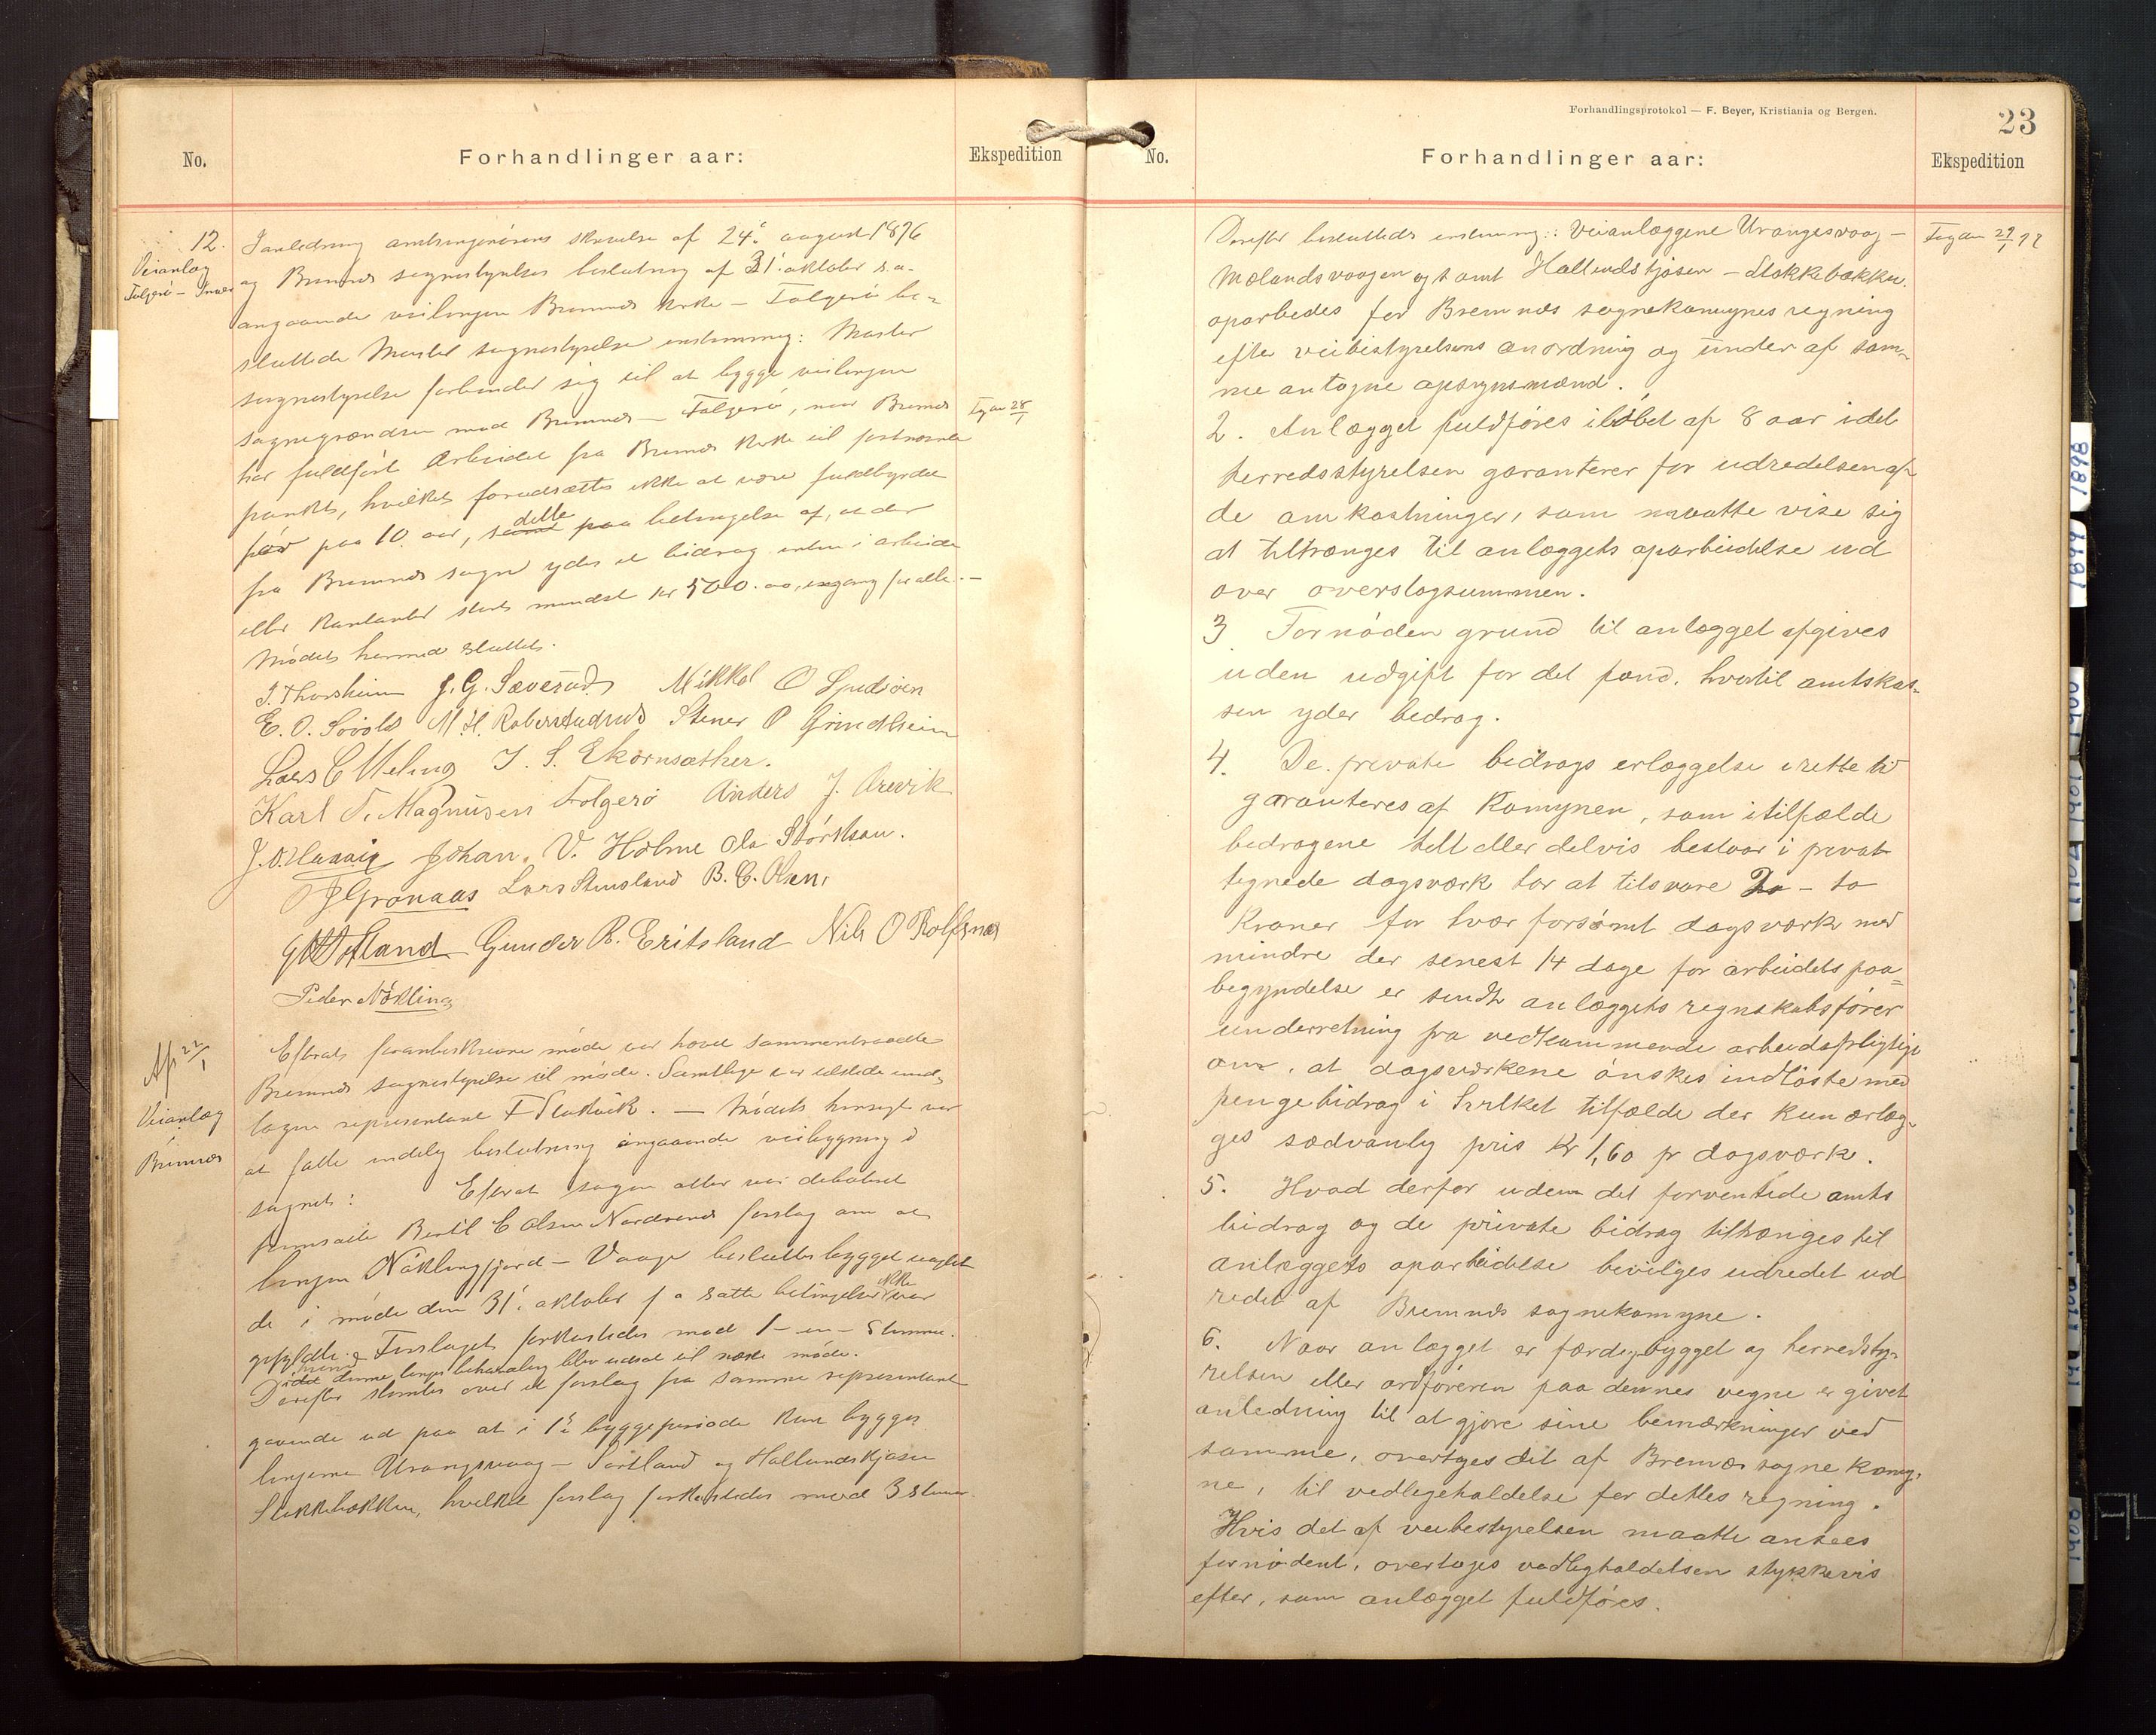 No.
Forhandlinger aar:
Ekspedition
12.
Veianlæg
Folgerö –
I anledning amtsingeniörens skrivelse af 24. august 1896
og Bremnes sognestyrelses beslutning af 31. oktober s.a.
angaaende veilinjen Bremnes kirke – Folgerö be-
sluttede Moster sognestyrelse enstemmig: Moster
sognestyrelse forbinder sig til at bygge veilinjen
sognegrændsen mod Bremnes – Folgerö, naar Bremnes
har fuldfört arbeidet fra Bremnes kirke til förstnævnte
punkt, hvilket forudsættes ikke at være fuldbyrdet
för paa 10 aar, dette paa betingelse af, at der
fra Bremnes sogn ydes et bidrag enten i arbeide
eller kontanter stort mindst kr 500.00, engang for alle. –
Mödet hermed sluttet.
Egan 28/1
J. Thorsheim J. G. Sæverud Mikkel O Spidsöen
E. O. Sövold M. H. Robberstadnes Stener O Grindheim
Lars C Meling J. S. Ekornsæther.
Karl T. Magnusen Folgerö Anders J. Arevik
J. O. Hannig Johan. V. Holme Ola Störkson.
J Gronaas Lars Stensland B. C. Olsen,
Gunder R. Eritsland Nils O Rolfsnes
Peder Nökling
Af 22/1
Veianlæg
i
Bremnes
Efterat foranbeskrevne möde var hævet sammentraadte
Bremnes sognestyrelse til möde. Samtlige var tilstede und-
tagen representant F Slaktvik. – Mödets hensigt var
at fatte endelig beslutning angaaende veibygning i
sognet: Efterat sagen atter var debatteret
fremsatte Bertil C Olsen Nordvends forslag om at
linjen Nöklingfjord – Vaage besluttes bygget uagtet
de i möde den 31. oktober f a satte betingelser ikke var
opfyldte. Forslaget forkastedes mod 1 – en – stemme.
idet denne linjes behandling blev udsat til næste möde.
Derefter stemtes over et forslag fra samme representant
gaaende ud paa at i 1ste byggeperiode kun bygges
linjerne Urangsvaag – Sörtland og Hallandskjosen
Stokkebækken, hvilket forslag forkastedes mod 3 stemmer.
Forhandlingsprotokol — F. Beyer, Kristiania og Bergen.
23
No.
Forhandlinger aar:
Ekspedition
Derefter besluttedes enstemmig: Veianlæggene Urangesvaag –
Mælandsvaagen og samt Hallandstjösen – Stokkebækken.
oparbedes for Bremnæs sognekomynes regning
efter veibestyrelsens anordning og under af sam-
me antagne opsynsmænd.
2. Anlægget fuldföres i löbet af 8 aar idet
herredsstyrelsen garanterer for udredelsen af
de omkostninger, som maatte vise sig
at tiltrænges til anlæggets oparbeidelse ud
over overslagsummen.
3 Fornöden grund til anlægget afgives
uden udgift for det fond. hvortil amtskas-
sen yder bedrag.
4. De private bidrags erlæggelse i rette tid
garanteres af Komynen, som i tilfælde
bedragene helt eller delvis bestaar i privat
tegnede dagsværk har at tilsvare 2 – to
Kroner for hvær forsömt dagsværk med
mindre der senest 14 dage for arbeidets paa=
begyndelse er sendt anlæggets regnskabsförer
underretning fra vedkommende arbeidspligtige
om, at dagsværkene önskes indlöste med
pengebidrag i hvilket tilfælde der kun erlæg-
ges sædvanlig pris kr 1,60 pr dagsværk.
5. Hvad derfor uden det forventede amts
bidrag og de private bidrag tiltrænges til
anlæggets oparbeidelse bevilges udredet ud
redet af Bremnes sognekomyne.
6. Naar anlægget er færdigbygget og herredsty-
relsen eller ordföreren paa dennes vegne er givet
anledning til at gjöre sine bemærkninger ved
samme, overtages dit af Bremnes sogne komy-
ne, til vedligeholdelse for dettes regning.
Hvis det af veibestyrelsen maatte ansees
fornödent, overtages vedligholdelsen stykkevis
efter, som anlægget fuldföres.
29/1 97
1898
1899
1900
1901
1902